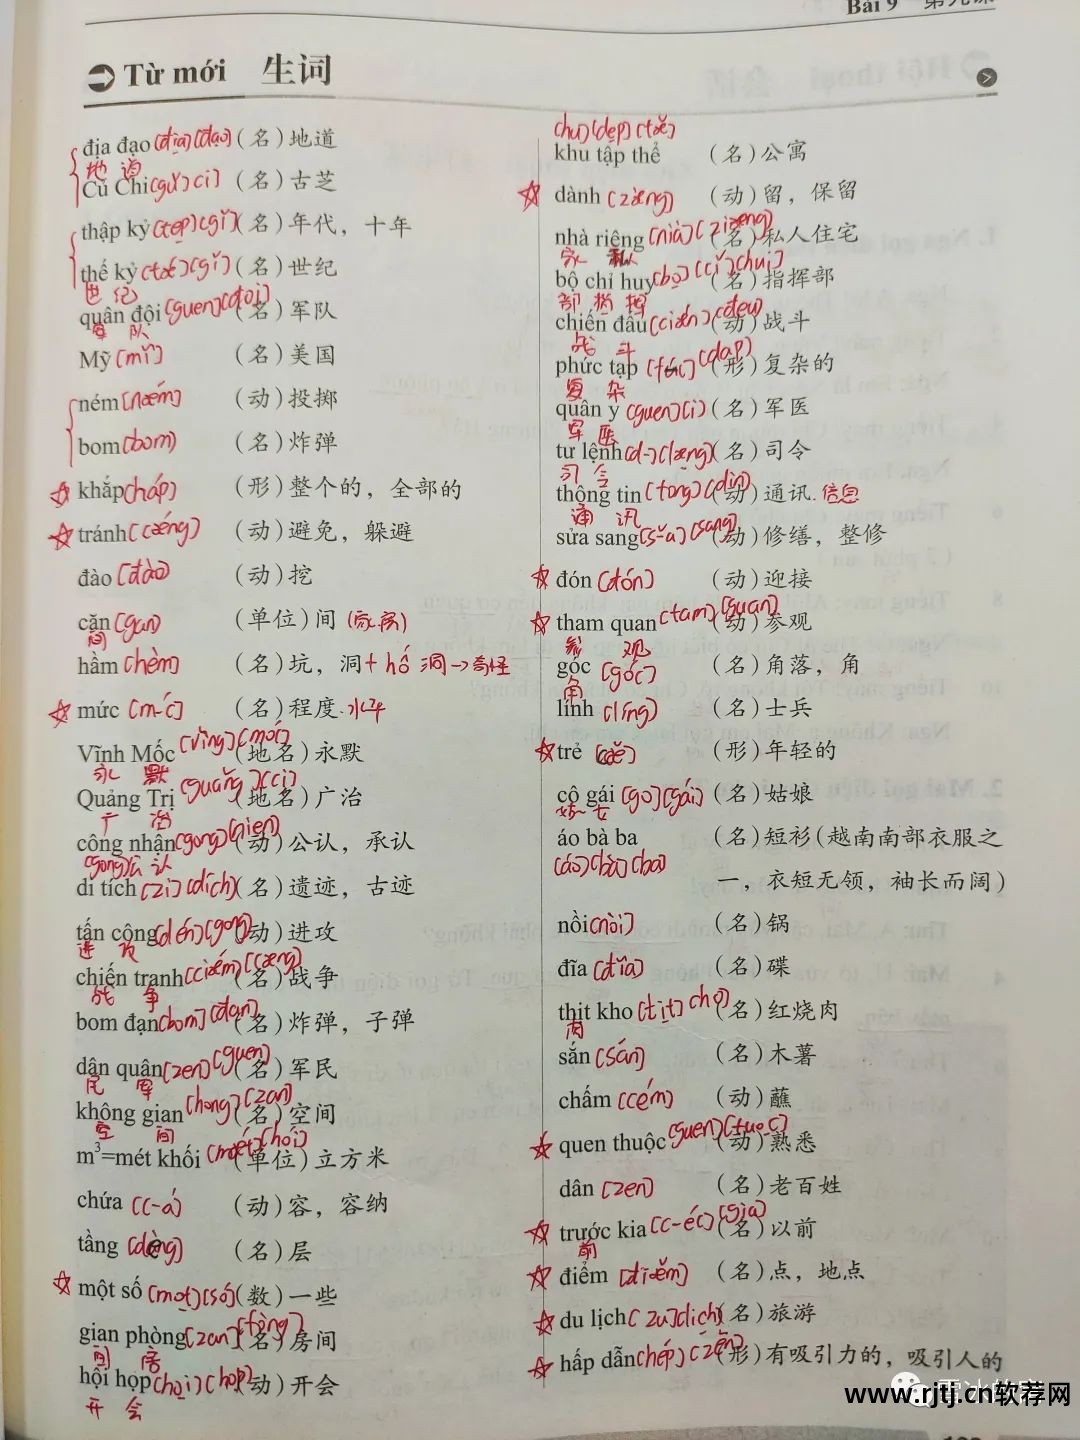 Bài 9 第九课
Từ mới 生词
địa đạo (địa) (đạo) (名) 地道
地 道
Củ Chi (gủ) ci) (名) 古芝
thập kỷ (tẹp) (gǐ) (名) 年代，十年
thế kỷ (tế) (gǐ) (名) 世纪
世 纪
quân đội (guen) (đọi) (名) 军队
军 队
Mỹ (mǐ) (名) 美国
ném (nǽm) (动) 投掷
bom (bom) (名) 炸弹
☆ khắp (háp) (形) 整个的，全部的
☆ tránh (cǽng) (动) 避免，躲避
đào (đào) (动) 挖
căn (gan) (单位) 间 (家.房)
间
hầm (hèm) (名) 坑，洞 + hố 洞→奇怪
☆ mức (m-́c) (名) 程度.水平
Vĩnh Mốc (vǐng) (móc) (地名) 永默
永 默
Quảng Trị (guǎng) (cị) (地名) 广治
广 治
công nhận (gong) (ñien) (动) 公认，承认
(gong) 公 认
di tích (zi) (dích) (名) 遗迹，古迹
tấn công (dén) (gong) (动) 进攻
进 攻
chiến tranh (ciém) (cæng) (名) 战争
战 争
bom đạn (bom) (đạn) (名) 炸弹，子弹
dân quân (zen) (guen) (名) 军民
民 军
không gian (hong) (zan) (名) 空间
空 间
m³=mét khối (mét) (hói) (单位) 立方米
chứa (c-́a) (动) 容，容纳
tầng (dèng) (名) 层
☆ một số (mọt) (só) (数) 一些
gian phòng (zan) (fòng) (名) 房间
间 房
hội họp (họi) (họp) (动) 开会
开 会
(hu) (dẹp) (tě)
khu tập thể (名) 公寓
☆ dành (zæ̀ng) (动) 留，保留
nhà riêng (nià) (zieng) (名) 私人住宅
家 私
bộ chỉ huy (bọ) (cǐ) (hui) (名) 指挥部
部 指 挥
chiến đấu (cién) (đéu) (动) 战斗
战 斗
phức tạp (f-́c) (dạp) (形) 复杂的
复 杂
quân y (guen) (i) (名) 军医
军 医
tư lệnh (d-) (lẹng) (名) 司令
司 令
thông tin (tong) (din) (动) 通讯.信息
通 讯
sửa sang (s-̌a) (sang) (动) 修缮，整修
☆ đón (đón) (动) 迎接
☆ tham quan (tam) (guan) (动) 参观
参 观
góc (góc) (名) 角落，角
角
lính (líng) (名) 士兵
☆ trẻ (cæ̌) (形) 年轻的
cô gái (go) (gái) (名) 姑娘
姑 女
áo bà ba (名) 短衫（越南南部衣服之
(áo) (bà) (ba)
一，衣短无领，袖长而阔）
nồi (nòi) (名) 锅
đĩa (đǐa) (名) 碟
thịt kho (tịt) (ho) (名) 红烧肉
肉
sắn (sán) (名) 木薯
chấm (cém) (动) 蘸
☆ quen thuộc (guen) (tuọc) (动) 熟悉
dân (zen) (名) 老百姓
☆ trước kia (c-́ec) (gia) (名) 以前
前
☆ điểm (điěm) (名) 点，地点
☆ du lịch (zu) (lịch) (名) 旅游
☆ hấp dẫn (hép) (zěn) (形) 有吸引力的，吸引人的
www.rjtj.cn软荐网